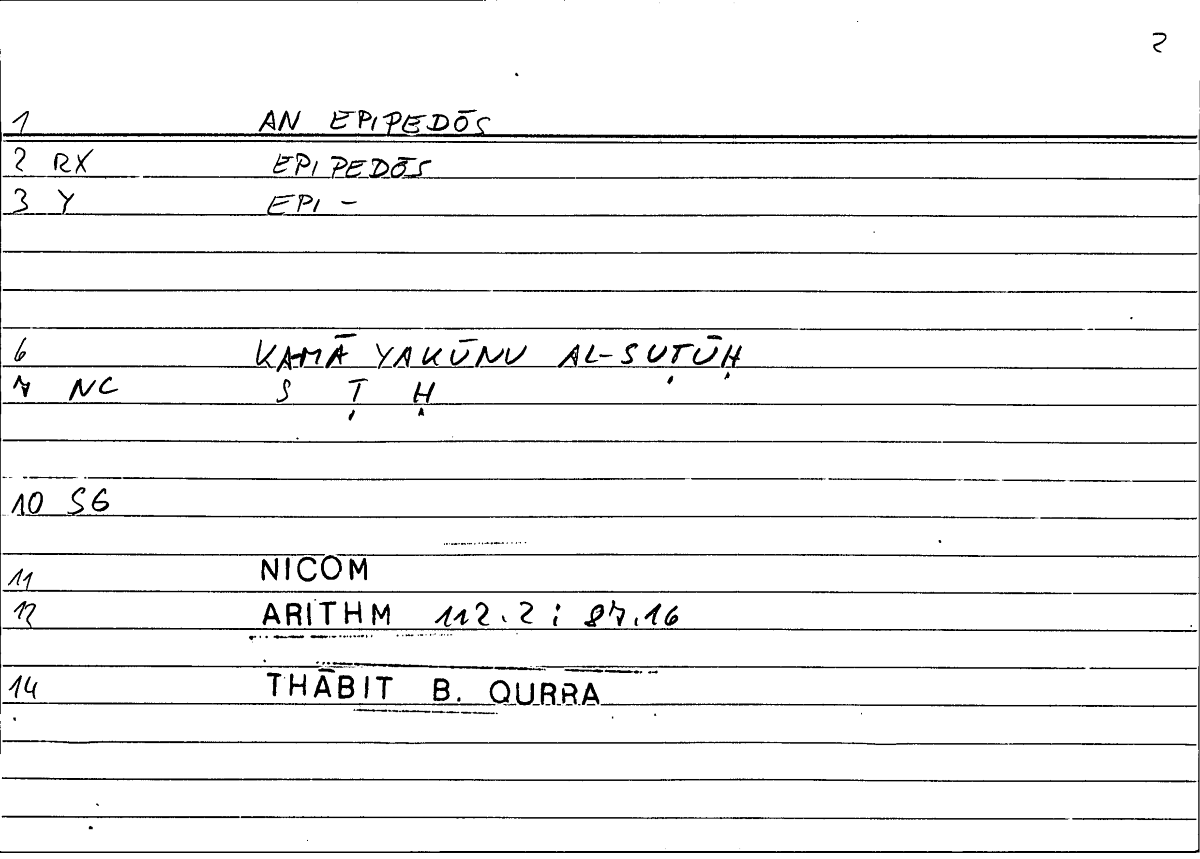 2
1 AN EPIPEDŌS
2 RX EPIPEDŌS
3 Y EPI -
6 KAMĀ YAKŪNU AL-SUṬŪḤ
7 NC S Ṭ Ḥ
10 SG
11 NICOM
12 ARITHM 112.2 ; 87.16
14 THĀBIT B. QURRA